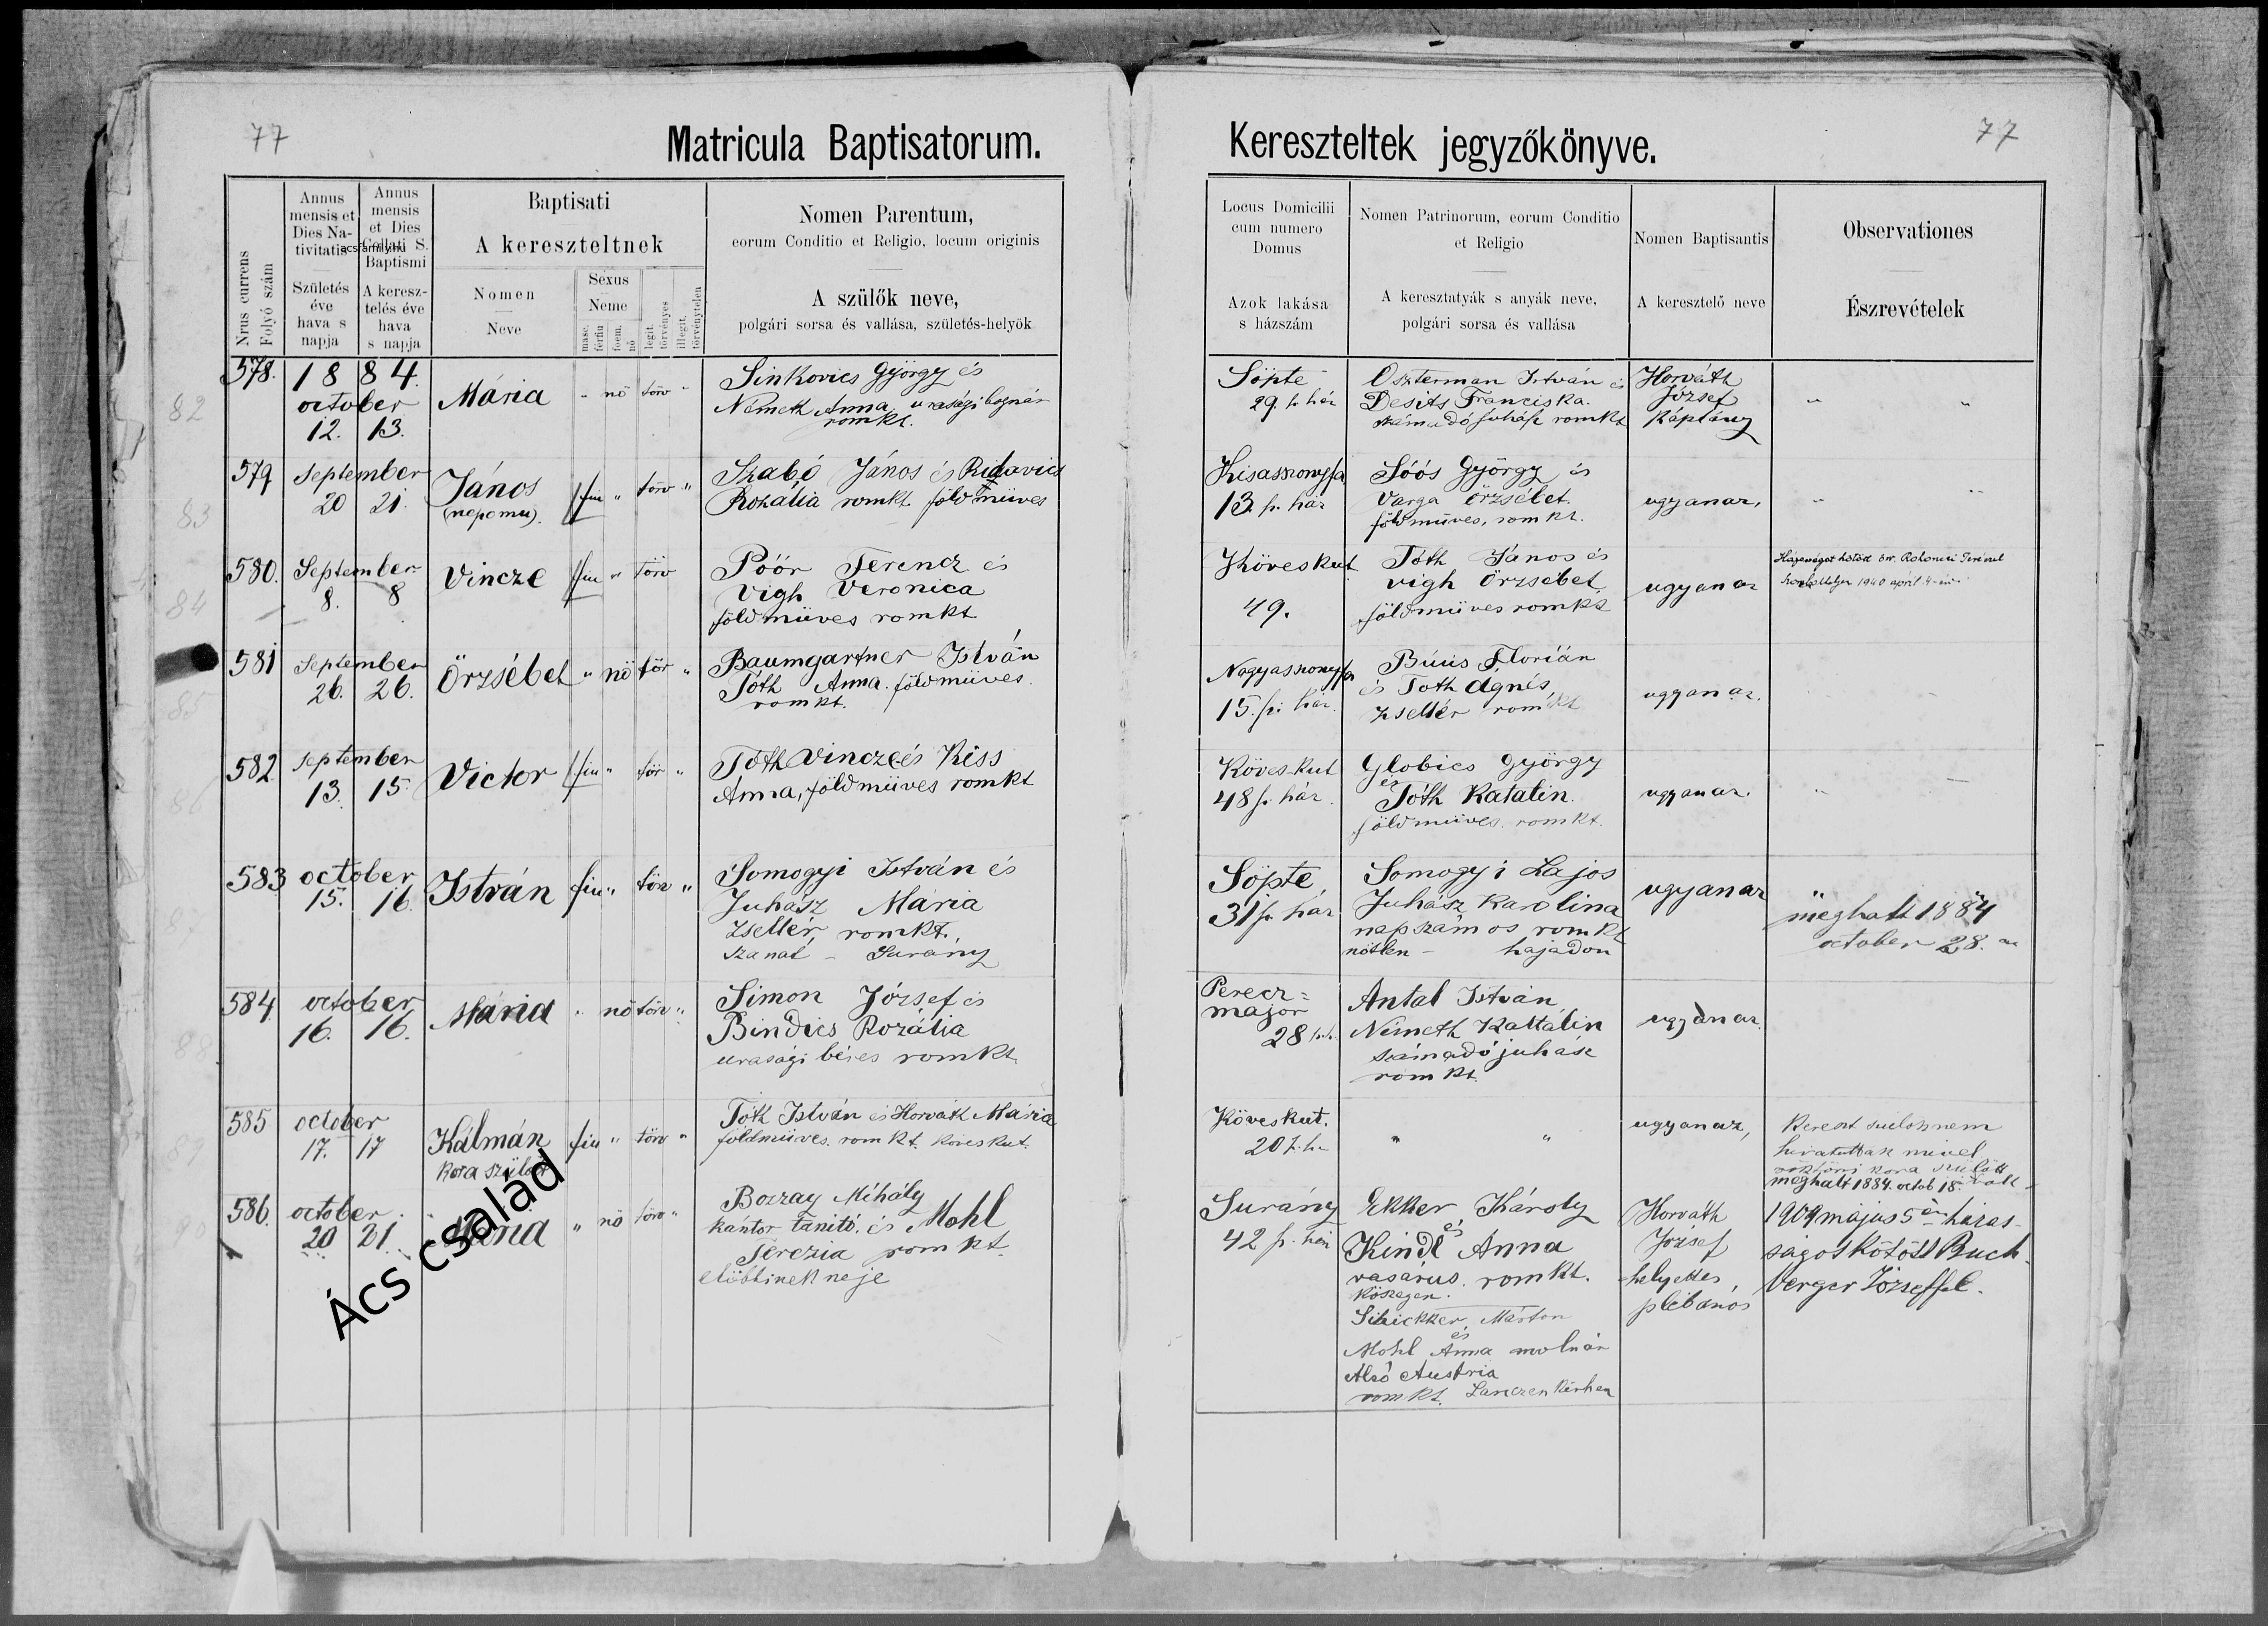 77
Matricula Baptisatorum.
Nrus currens
Folyó szám
Annus
mensis et
Dies Na-
tivitatis
Születés
éve
hava s
napja
Annus
mensis
et Dies
Collati S.
Baptismi
A keresz-
telés éve
hava
s napja
acsfamily.hu
Baptisati
A kereszteltnek
Nomen
Neve
Sexus
Neme
masc.
férfiu
foem.
nő
legit.
törvényes
illegit.
törvénytelen
Nomen Parentum,
eorum Conditio et Religio, locum originis
A szülők neve,
polgári sorsa és vallása, születés-helyök
578. 1884. october 12. 13. Mária " nő törv "
Sinkovics György és
Németh Anna urasági bognár
romkt.
579 September 20 21. János (nepomu). fiu " törv "
Szabó János és
Rozália romkt földmüves
580. September 8. 8 Vincze fiu " törv
Póór Ferencz és
Vigh Veronica
földmüves romkt
581 September 26. 26. Örzsébet " nő tör "
Baumgartner István
Tóth Anna. földmüves.
romkt.
582 September 13. 15. Victor fiu " tör "
Tóth Vincze és Kiss
Anna, földmüves romkt
583 october 15. 16. István fiu " törv "
Somogyi István és
Juhász Mária
zsellér romkt.
Szanat – Surány
584. october 16. 16. Mária " nő törv "
Simon József és
Bindics Rozália
urasági béres romkt.
585 october 17. 17 Kálmán kora szülött fiu " törv "
Tóth István és Horváth Mária
földmüves. romkt. Köveskut.
586. october 20 21. Mária " nő törv "
Bozzay Mihály
kántor tanító. és Mohl
Terezia romkt.
előbbinek neje
Ács család
82
83
84
85
86
88
89
90
Kereszteltek jegyzőkönyve.
77
Locus Domicilii
cum numero
Domus
Azok lakása
s házszám
Nomen Patrinorum, eorum Conditio
et Religio
A keresztatyák s anyák neve,
polgári sorsa és vallása
Nomen Baptisantis
A keresztelő neve
Observationes
Észrevételek
Söpte
29.
Oszterman István és
Desits Franciska.
számadó juhász romkt
Horváth
József
káplány
Kisasszonyfa
13.
Sóós György és
Varga Örzsébet.
földmüves, romkt.
ugyanaz,
Köveskut
49.
Tóth János és
Vigh Örzsébet
földmüves romkt
ugyanaz
Házasságot kötött
1940 april 4-én
Nagyasszonyfa
15.
Búús Florián
és Toth Ágnés
zsellér romkt
ugyanaz.
Köveskut
48
Globics György
és
Tóth Katalin.
földmüves. romkt.
ugyanaz.
Söpte
31
Somogyi Lajos
Juhász Karolina
napszámos romkt
nőtlen – hajadon
ugyanaz
meghalt 1884
october 28. án
Perecz=
major
28
Antal István
Németh Kattalin
számadó juhász
romkt.
ugyanaz.
Köveskut.
20
ugyanaz,
Kereszt szülok nem
hivatattak mivel
kora szülött
meghalt 1884. octob 18.
Surány
42
Ekker Károly
és
Kindl Anna
vasárus. romkt.
Kőszegen.
Márton
és
Mohl Anna molnár
Alsó Austria
romkt.
Horváth
József
helyettes
plébános
1909 május 5én házas-
ságot kötött Buch-
berger Józseffel.